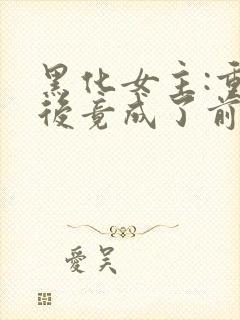 黑化女主:重
後竟成了前
愛吳